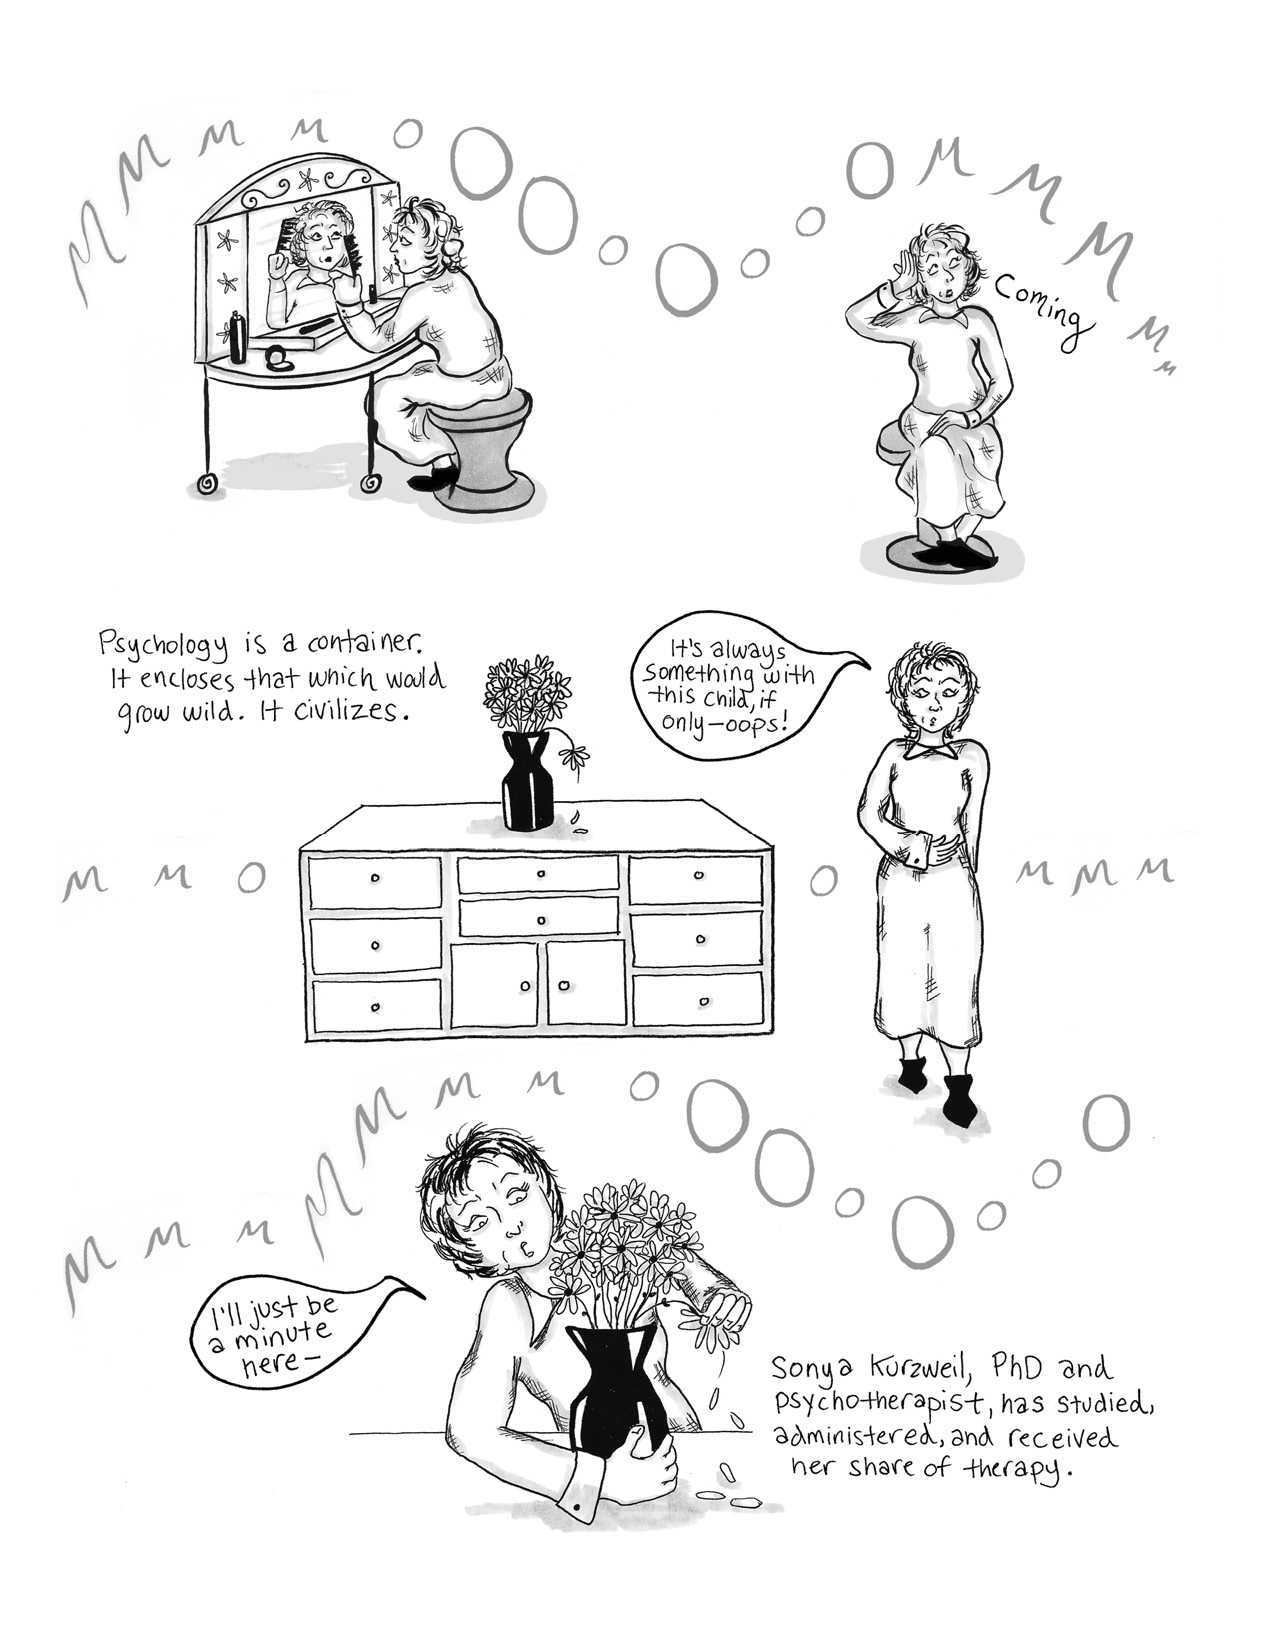 M M M M O O O O O O O M M M M M M
Coming
Psychology is a container.
It encloses that which would
grow wild. It civilizes.
It's always
something with
this child, if
only—oops!
M M O O M M M
M M M M M M M O O O O O O O
I'll just be
a minute
here—
Sonya Kurzweil, PhD and
psychotherapist, has studied,
administered, and received
her share of therapy.